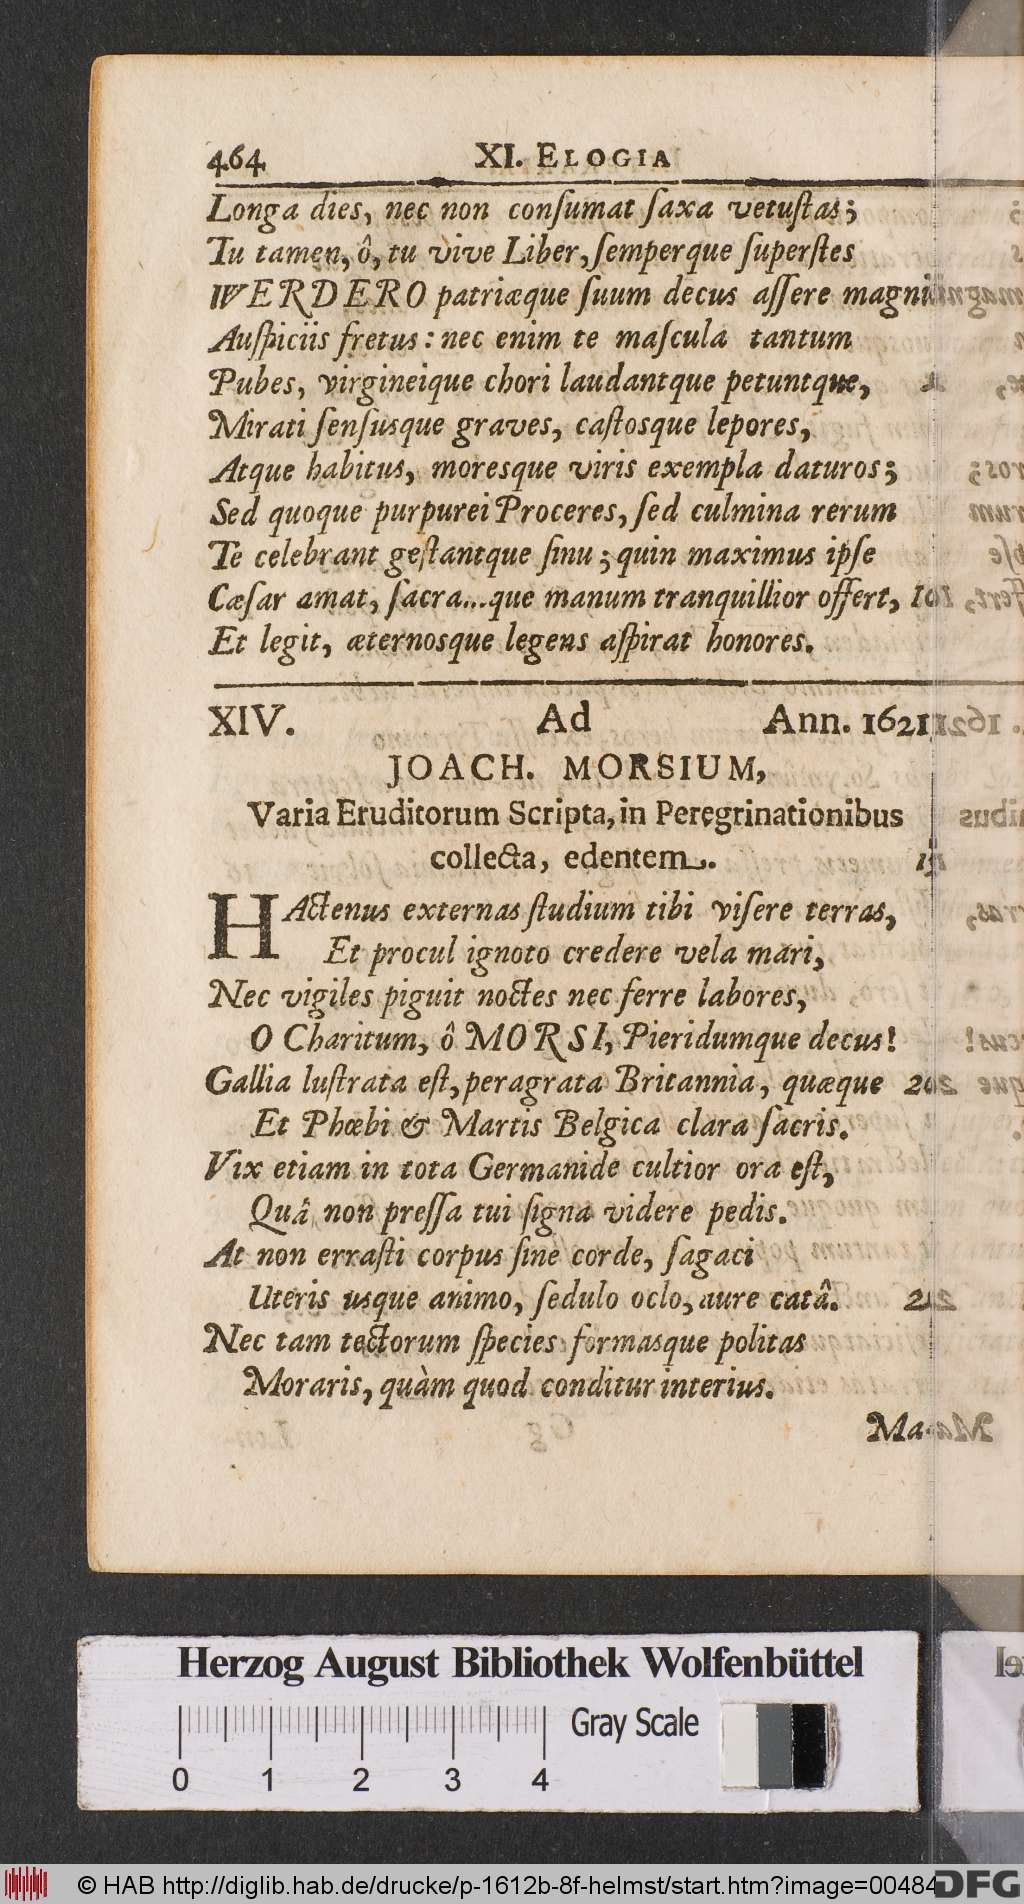 464 XI. ELOGIA
Longa dies, nec non conſumat ſaxa vetuſtas;
Tu tamen, ô, tu vive Liber, ſemperque ſuperſtes
WERDERO patriæque ſuum decus aſſere magni
Auſpiciis fretus: nec enim te maſcula tantum
Pubes, virgineique chori laudantque petuntque,
Mirati ſenſusque graves, caſtosque lepores,
Atque habitus, moresque viris exempla daturos;
Sed quoque purpurei Proceres, ſed culmina rerum
Te celebrant geſtantque ſinu; quin maximus ipſe
Cæſar amat, ſacra...que manum tranquillior offert, 10
Et legit, æternosque legens aſpirat honores.
XIV. Ad Ann. 1621
JOACH. MORSIUM,
Varia Eruditorum Scripta, in Peregrinationibus
collecta, edentem. 15
HActenus externas ſtudium tibi viſere terras,
Et procul ignoto credere vela mari,
Nec vigiles piguit noctes nec ferre labores,
O Charitum, ô MORSI, Pieridumque decus!
Gallia luſtrata eſt, peragrata Britannia, quæque 20
Et Phœbi & Martis Belgica clara ſacris.
Vix etiam in tota Germanide cultior ora eſt,
Quâ non preſſa tui ſigna videre pedis.
At non errasti corpus ſine corde, ſagaci
Uteris usque animo, ſedulo oclo, aure catâ. 25
Nec tam tectorum ſpecies formasque politas
Moraris, quàm quod conditur interius.
Ma-
Herzog August Bibliothek Wolfenbüttel
Gray Scale
0 1 2 3 4
© HAB http://diglib.hab.de/drucke/p-1612b-8f-helmst/start.htm?image=00484
DFG